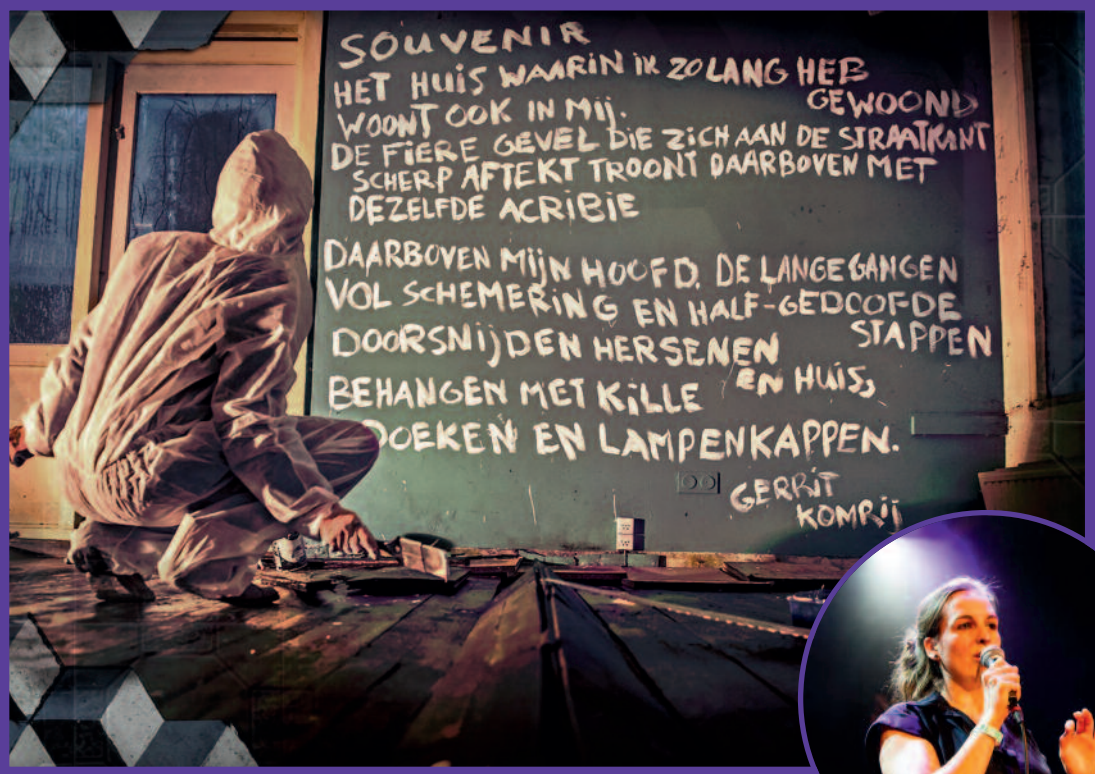 SOUVENIR
HET HUIS WAARIN IK ZO LANG HEB
GEWOOND
WOONT OOK IN MIJ.
DE FIERE GEVEL DIE ZICH AAN DE STRAATKANT
SCHERP AFTEKT TROONT DAARBOVEN MET
DEZELFDE ACRIBIE
DAARBOVEN MIJN HOOFD. DE LANGE GANGEN
VOL SCHEMERING EN HALF-GEDOOFDE
STAPPEN
DOORSNIJDEN HERSENEN
EN HUIS,
BEHANGEN MET KILLE
DOEKEN EN LAMPENKAPPEN.
GERRIT
KOMRIJ